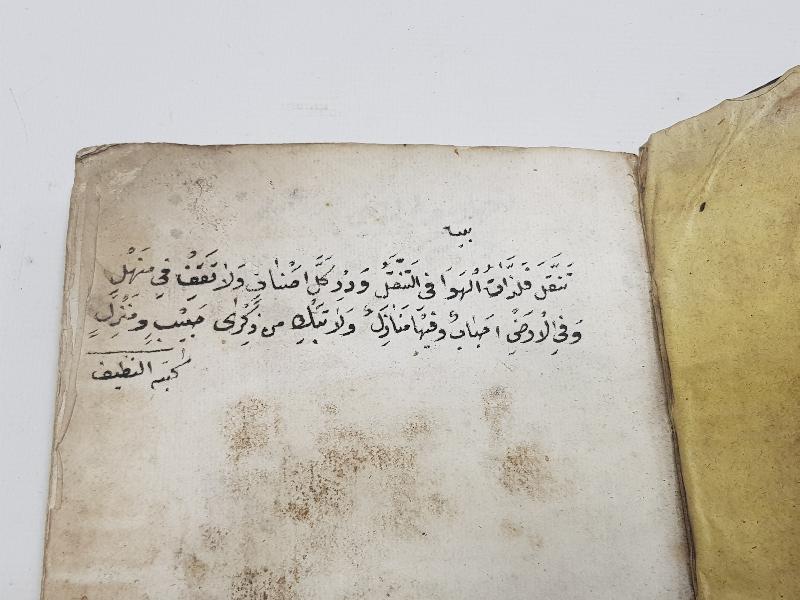 بيت
تَنَقَّلَ فَلَذَّاتُ الْهَوَا فى التَّنَقُّلِ وَرِدْ كَلَّ اصْنافٍ وَلا تَقِفْ فِي مَنْهَلِ
وَفِي الْاَرْضِ احبابٌ وفيْهَا مَنَازِلٌ وَلا تَبْكِ مِن ذِكْرٰى حَبيْبٍ وَمَنْزِلِ
النظيف